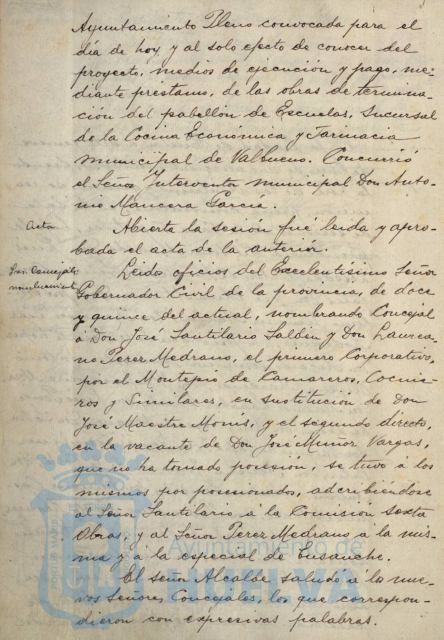 Ayuntamiento Pleno convocada para el
día de hoy y al solo efecto de conocer del
proyecto, medios de ejecución y pago, me-
diante prestamo, de las obras de termina-
ción del pabellón de Escuelas, Sucursal
de la Cocina Económica y Farmacia
Municipal de Valbueno. Concurrió
el Señor Interventor municipal Don Anto-
nio Mancera García.
Acta
Abierta la sesión fué leida y apro-
bada el acta de la anterior.
Sres. Concejales
nombramiento
Leidos oficios del Excelentísimo Señor
Gobernador Civil de la provincia, de doce
y quince del actual, nombrando Concejal
á Don José Santilario Salbin y Don Laurea-
no Perez Medrano, el primero Corporativo,
por el Montepío de Camareros, Cocine-
ros y Similares, en sustitución de Don
José Maestre Monís, y el segundo directo,
en la vacante de Don José Muñoz Vargas,
que no ha tomado posesión, se tuvo á los
mismos por posesionados, adcribiendose
al Señor Santilario, á la Comisión sexta
Obras, y al Señor Perez Medrano á la mis-
ma y á la especial de Ensanche.
El señor Alcalde saludó á lo nue-
vos Señores Concejales, los que correspon-
dieron con expresivas palabras.